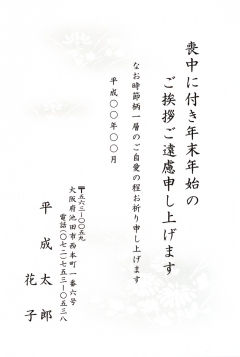 喪中に付き年末年始の
ご挨拶ご遠慮申し上げます
なお時節柄一層のご自愛の程お祈り申し上げます
平成〇〇年〇〇月
〒五六三-〇〇五九
大阪府池田市西本町一番六号
電話(〇七二)七五三-〇五三八
平成太郎
花子